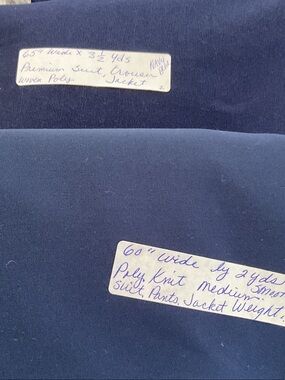 65" Wide x 3 ½ yds
Premium Suit, trouser
Woven Poly. Jacket
Navy
60" Wide by 2 yds
Poly Knit medium
Suit, Pants, Jacket Weight,